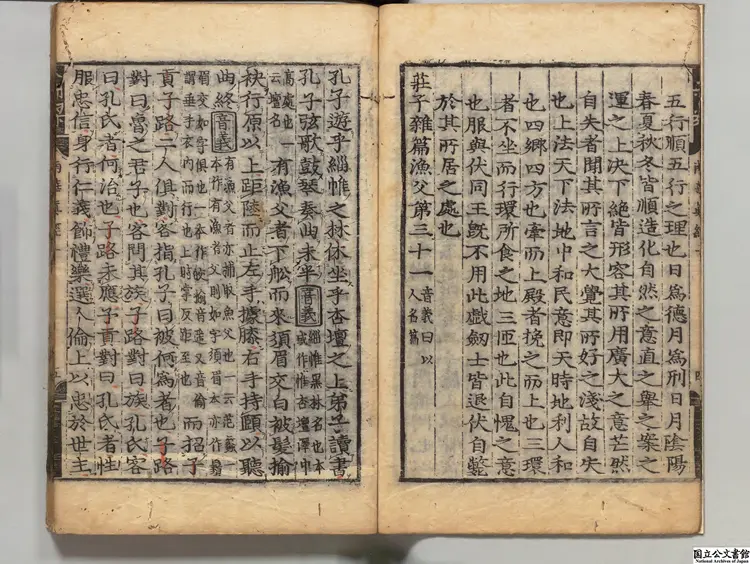 五行順五行之理也日爲德月爲刑日月陰陽
春夏秋冬皆順造化自然之意直之擧之案之
運之上决下絶皆形容其所用廣大之意芒然
自失者聞其所言之大覺其所好之淺故自失
也上法天下法地中和民意即天時地利人和
也四郷四方也牽而上殿者挽之而上也三環
者不坐而行環所食之地三匝也此自愧之意
也服與伏同王旣不用此戱劒士皆退伏自斃
於其所居之處也
莊子雜篇漁父第三十一 音義曰以人名篇
孔子遊乎緇帷之林休坐乎杏壇之上弟子讀書
孔子弦歌鼓琴奏曲未半 音義 緇帷黑林名也本或作惟杏壇澤中
高處也一云壇名 有漁父者下舩而來須眉交白被髮揄
袂行原以上距陸而止左手據膝右手持頤以聽
曲終 音義 有漁父者亦捕取魚父也一云范蠡一本作有漁者父則如字須眉本亦作鬚
眉交如字俱也一本作皎揄音遥又音俞謂垂手衣內而行也上時掌反距至也 而招子
貢子路二人俱對客指孔子曰彼何爲者也子路
對曰魯之君子也客問其族子路對曰族孔氏客
曰孔氏者何治也子路未應子貢對曰孔氏者性
服忠信身行仁義飾禮樂選人倫上以忠於世主
国立公文書館
National Archives of Japan